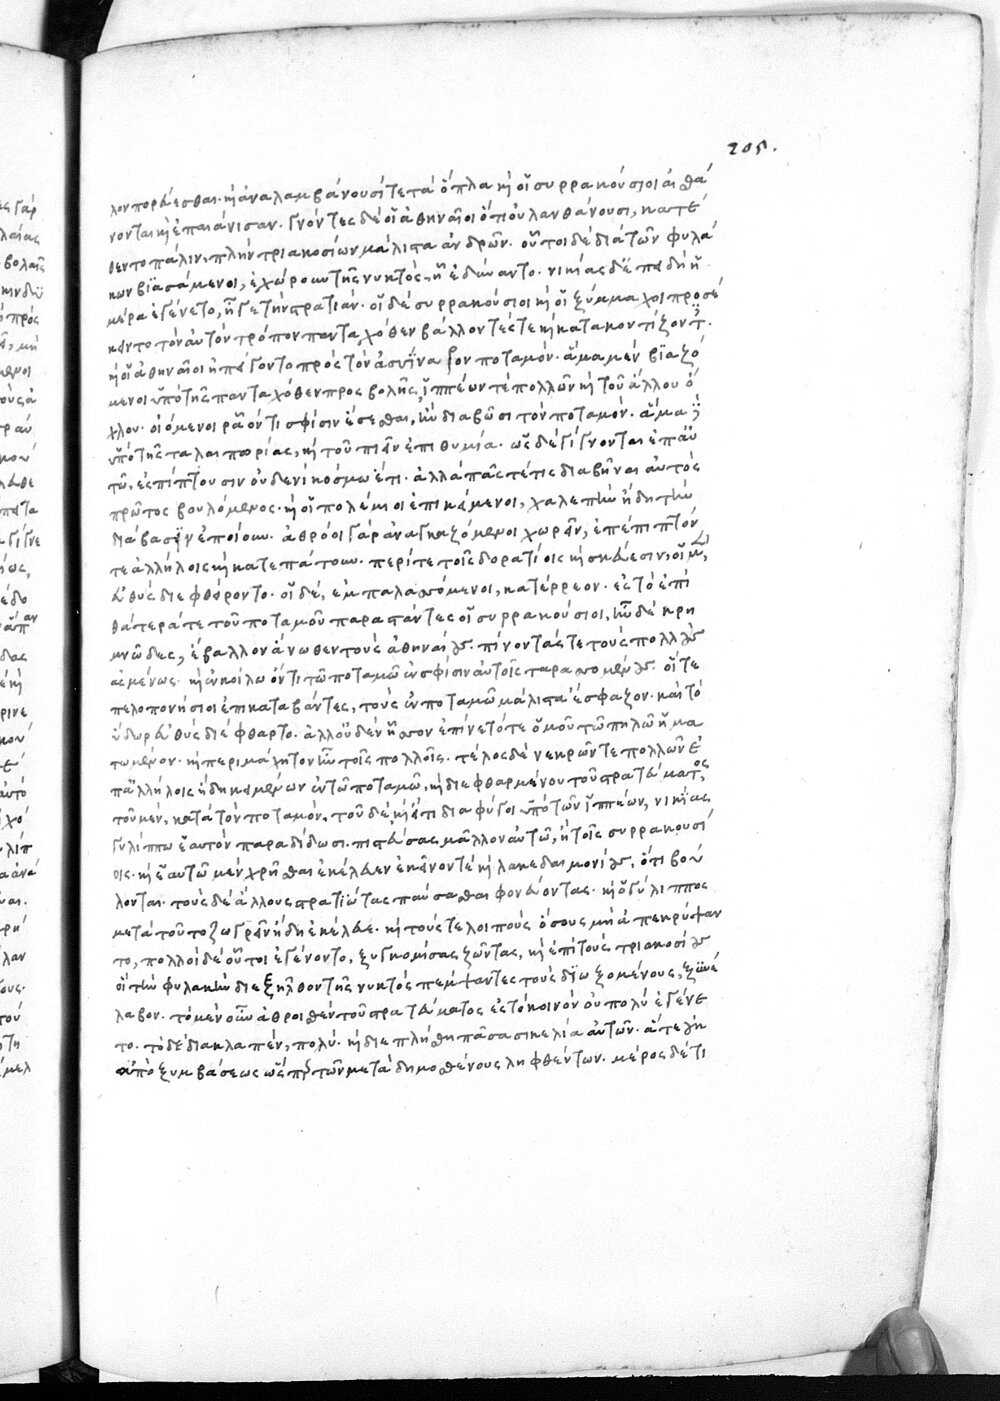 205.
λον πορεύεσθαι· καὶ ἀναλαμβάνουσί τε τὰ ὅπλα καὶ οἱ συρρακούσιοι αἰσθά
νονται καὶ ἐπαιάνισαν. γνόντες δὲ οἱ ἀθηναῖοι ὅτι οὐ λανθάνουσι, κατέ
θεντο πάλιν, πλὴν τριακοσίων μάλιστα ἀνδρῶν. οὗτοι δὲ διὰ τῶν φυλά
κων βϊασάμενοι, ἐχώρουν τῆς νυκτὸς ᾗ ἐδύναντο. νικίας δ' ἐπειδὴ ἡ
μέρα ἐγένετο, ἦγε τὴν στρατιάν. οἱ δὲ συρρακούσιοι καὶ οἱ ξύμμαχοι προσέ
κειντο τὸν αὐτὸν τρόπον πανταχόθεν βάλλοντές τε καὶ κατακοντίζοντες.
καὶ οἱ ἀθηναῖοι ἠπείγοντο πρὸς τὸν ἀσσύναρον ποταμόν. ἅμα μὲν βϊαζό
μενοι ὑπὸ τῆς πανταχόθεν προσβολῆς, ἱππέων τὲ πολλῶν καὶ τοῦ ἄλλου ὄ
χλου. οἰόμενοι ῥᾷόν τι σφίσιν ἔσεσθαι, ἢν διαβῶσι τὸν ποταμόν. ἅμα δ'
ὑπὸ τῆς ταλαιπωρίας, καὶ τοῦ πιεῖν ἐπιθυμίᾳ. ὡς δὲ γίγνονται ἐπ' αὐ
τῷ, ἐσπίπτουσιν οὐδενὶ κόσμῳ ἔτι. ἀλλὰ πᾶς τέ τις διαβῆναι αὐτὸς
πρῶτος βουλόμενος. καὶ οἱ πολέμιοι ἐπικείμενοι, χαλεπὴν ἤδη τὴν
διάβασιν ἐποίουν. ἀθρόοι γὰρ ἀναγκαζόμενοι χωρεῖν, ἐπέπιπτόν
τε ἀλλήλοις καὶ κατεπάτουν. περί τε τοῖς δορατίοις καὶ σκεύεσιν, οἱ μὲν,
εὐθὺς διεφθείροντο. οἱ δὲ, ἐμπαλασσόμενοι, κατέρρεον. ἐς τὸ ἐπὶ
θάτερά τε τοῦ ποταμοῦ παραστάντες οἱ συρρακούσιοι, ἦν δὲ κρη
μνῶδες, ἔβαλλον ἄνωθεν τοὺς ἀθηναίους. πίνοντάς τε τοὺς πολλοὺς
ἀσμένως. καὶ ἐν κοίλῳ ὄντι τῷ ποταμῷ ἐν σφίσιν αὐτοῖς ταρασσομένους. οἵ τε
πελοπονήσιοι ἐπικαταβάντες, τοὺς ἐν ποταμῷ μάλιστα ἔσφαζον. καὶ τὸ
ὕδωρ εὐθὺς διέφθαρτο. ἀλλ' οὐδὲν ἧσσον ἐπίνετό τε ὁμοῦ τῷ πηλῷ ᾑμα
τωμένον. καὶ περιμάχητον ἦν τοῖς πολλοῖς. τέλος δὲ νεκρῶν τε πολλῶν ἐ
π' ἀλλήλοις ἤδη κειμένων ἐν τῷ ποταμῷ, καὶ διεφθαρμένου τοῦ στρατεύματος
τοῦ μὲν, κατὰ τὸν ποταμόν, τοῦ δὲ, καὶ εἴ τι διαφύγοι ὑπὸ τῶν ἱππέων, νικίας,
γυλίππῳ ἑαυτὸν παραδίδωσι. πιστεύσας μᾶλλον αὐτῷ, ἢ τοῖς συρρακουσί
οις. καὶ ἑαυτῷ μὲν χρῆσθαι ἐκέλευεν ἐκεῖνόν τέ καὶ λακεδαιμονίους, ὅτι βού
λονται. τοὺς δὲ ἄλλους στρατιώτας παύσασθαι φονεύοντας. καὶ ὁ γύλιππος
μετὰ τοῦτο ζωγρεῖν ἤδη ἐκέλευε. καὶ τούς τε λοιποὺς ὅσους μὴ ἀπεκρύψαν
το, πολλοὶ δὲ οὗτοι ἐγένοντο, ξυγκομίσας ζῶντας, καὶ ἐπὶ τοὺς τριακοσίους
οἳ τὴν φυλακὴν διεξῆλθον τῆς νυκτὸς πέμψαντες τοὺς διωξομένους, ξυνέ
λαβον. τὸ μὲν οὖν ἀθροισθὲν τοῦ στρατεύματος ἐς τὸ κοινὸν οὐ πολὺ ἐγένε
το. τὸ δὲ διακλαπὲν, πολύ. καὶ διεπλήσθη πᾶσα σικελία αὐτῶν. ἅτε οὐκ
ἀπὸ ξυμβάσεως ὥσπερ τῶν μετὰ δημοσθένους ληφθέντων. μέρος δέ τι